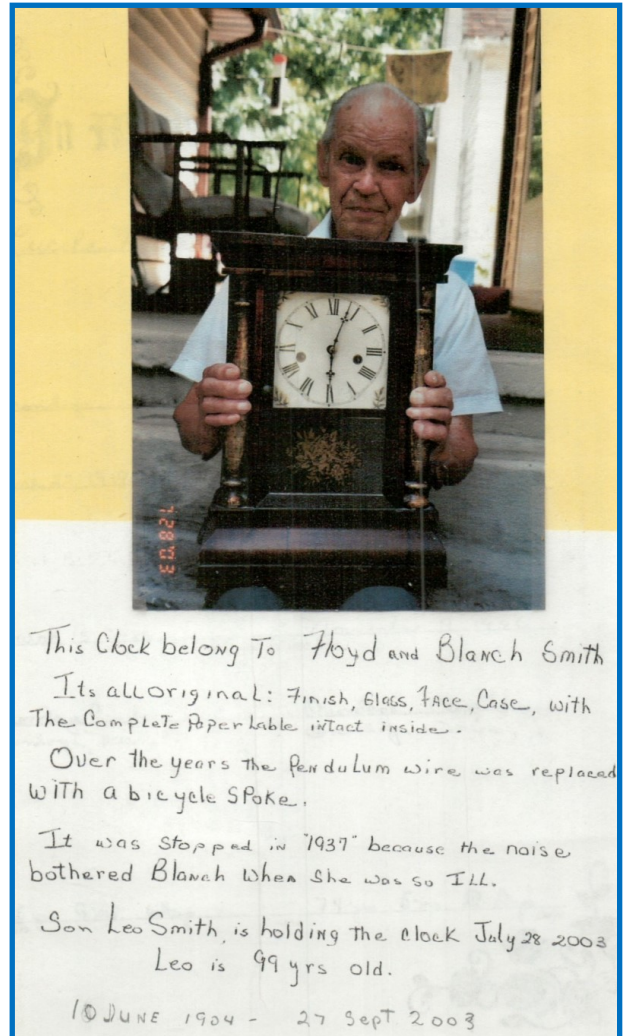 7 28 '03
This Clock belong To Floyd and Blanch Smith
Its all original: Finish, Glass, Face, Case, with
The Complete Paper Lable intact inside.
Over the years the Pendulum wire was replaced
with a bicycle Spoke.
It was stopped in "1937" because the noise
bothered Blanch when she was so ILL.
Son Leo Smith, is holding the clock July 28 2003
Leo is 99 yrs old.
10 JUNE 1904 - 27 Sept 2003